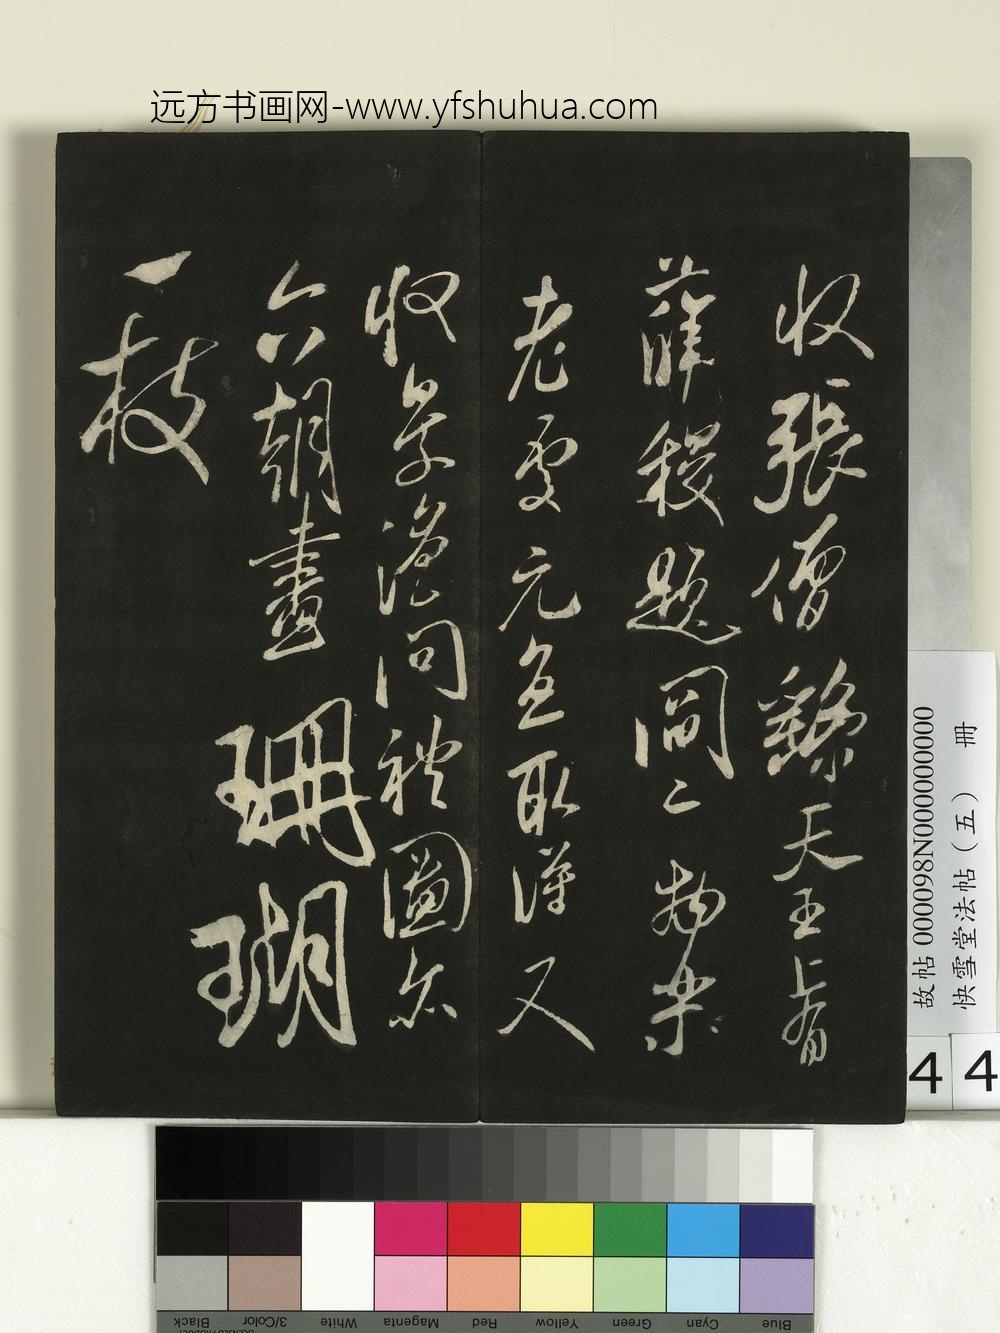 远方书画网-www.yfshuhua.com
收張僧繇天王上有
薛稷題閻二物樂
老處元直取得又
收景溫問禮圖亦
六朝畫珊瑚
一枝
故帖 000098N000000000
快雪堂法帖（五） 冊
4 4
Black
3/Color
White
Magenta
Red
Yellow
Green
Cyan
Blue